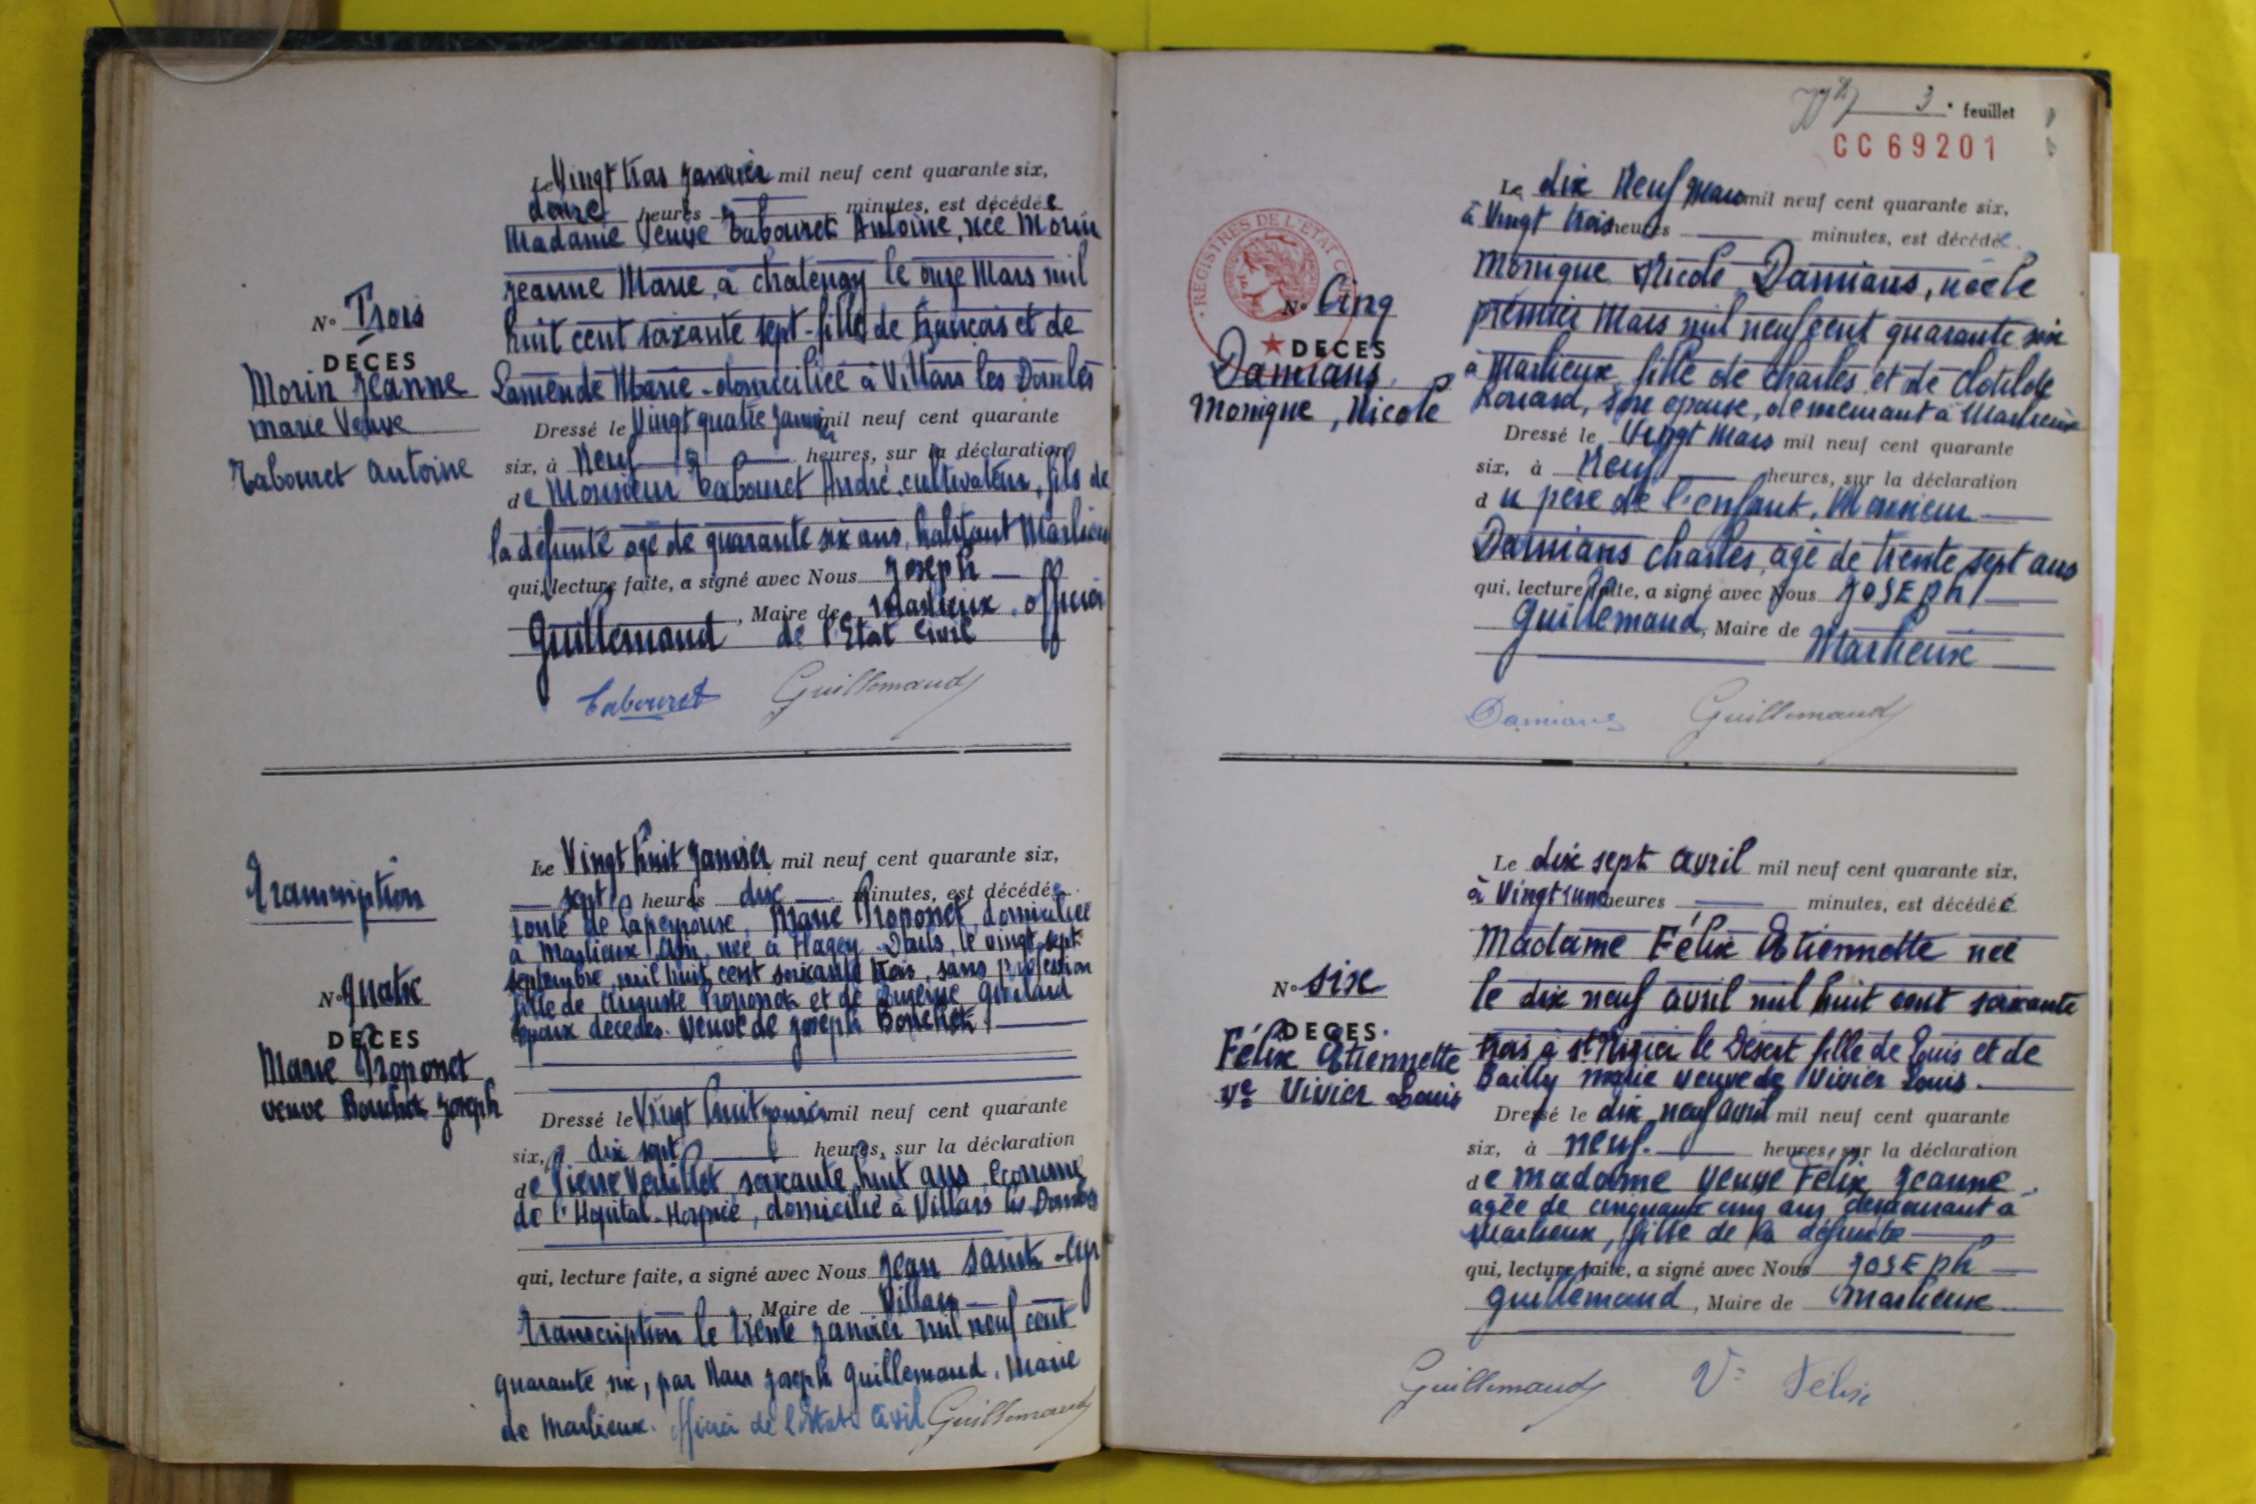 N° Trois
DECES
Morin Jeanne
Marie Veuve
Tabouret Antoine
Le Vingt trois Janvier mil neuf cent quarante six,
douze heures minutes, est décédée
Madame Veuve Tabouret Antoine, née Morin
Jeanne Marie, à Chatenay le onze Mars mil
huit cent soixante sept - fille de François et de
Lamende Marie - domiciliée à Villars les Dombes
Dressé le Vingt quatre Janvier mil neuf cent quarante
six, à Neuf heures, sur la déclaration
de Monsieur Tabouret André, cultivateur, fils de
la défunte agé de quarante six ans, habitant Marlieux
qui, lecture faite, a signé avec Nous Joseph
Guillemaud, Maire de Marlieux. officier
de l'Etat Civil
Tabouret Guillemaud
Transcription
N° quatre
DECES
Marie Proponet
veuve Bouchet Joseph
Le Vingt huit Janvier mil neuf cent quarante six,
sept heures dix minutes, est décédée
route de Lapeyrouse, Marie Proponet, domiciliée
à Marlieux Ain, née à le vingt sept
septembre, mil huit cent soixante trois, sans profession
fille de Auguste Proponet et de
époux décédés. Veuve de Joseph Bouchet
Dressé le Vingt huit janvier mil neuf cent quarante
six, à dix sept heures, sur la déclaration
de Pierre soixante huit ans, économe
de l'Hopital-Hospice, domicilié à Villars les Dombes
qui, lecture faite, a signé avec Nous Jean Saint-Cyr
, Maire de Villars
Transcription le trente janvier mil neuf cent
quarante six, par Nous Joseph Guillemaud, Maire
de Marlieux. officier de l'Etat Civil Guillemaud
3e feuillet
CC69201
REGISTRES DE L'ETAT CIVIL
N° Cinq
DECES
Damians
Monique, Nicole
Le dix Neuf Mars mil neuf cent quarante six,
à Vingt trois heures minutes, est décédée
Monique Nicole Damians, née le
premier Mars mil neuf cent quarante six
à Marlieux fille de Charles et de Clotilde
son épouse, demeurant à Marlieux
Dressé le Vingt Mars mil neuf cent quarante
six, à Neuf heures, sur la déclaration
du père de l'enfant, Monsieur
Damians Charles, agé de trente sept ans
qui, lecture faite, a signé avec Nous JOSEPH
Guillemaud, Maire de Marlieux
Damians Guillemaud
N° six
DECES.
Félix Etiennette
Ve Vivier Louis
Le dix sept avril mil neuf cent quarante six,
à Vingt une heures minutes, est décédée
Madame Félix Etiennette née
le dix neuf avril mil huit cent soixante
trois à St Nizier le Désert fille de Louis et de
Bailly Marie veuve de Vivier Louis.
Dressé le dix neuf avril mil neuf cent quarante
six, à neuf. heures, sur la déclaration
de madame veuve Félix Jeanne
agée de cinquante cinq ans demeurant à
Marlieux, fille de la défunte
qui, lecture faite, a signé avec Nous JOSEPH
Guillemaud, Maire de Marlieux
Guillemaud Ve Félix